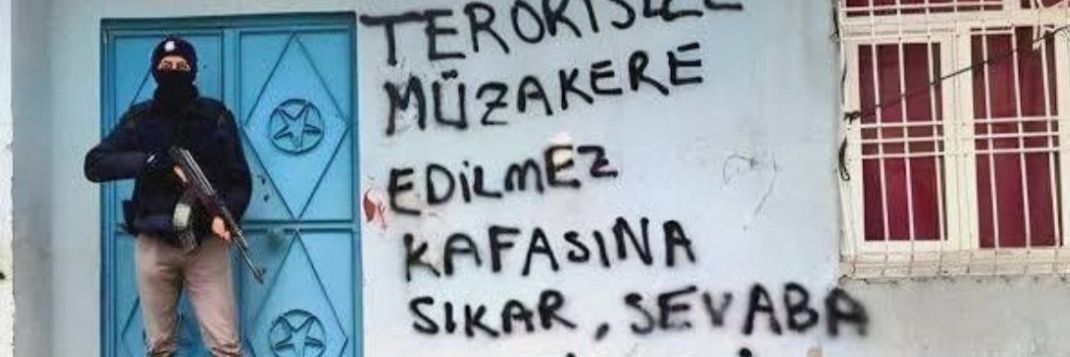 TERÖRİSLE
MÜZAKERE
EDİLMEZ
KAFASINA
SIKAR, SEVABA